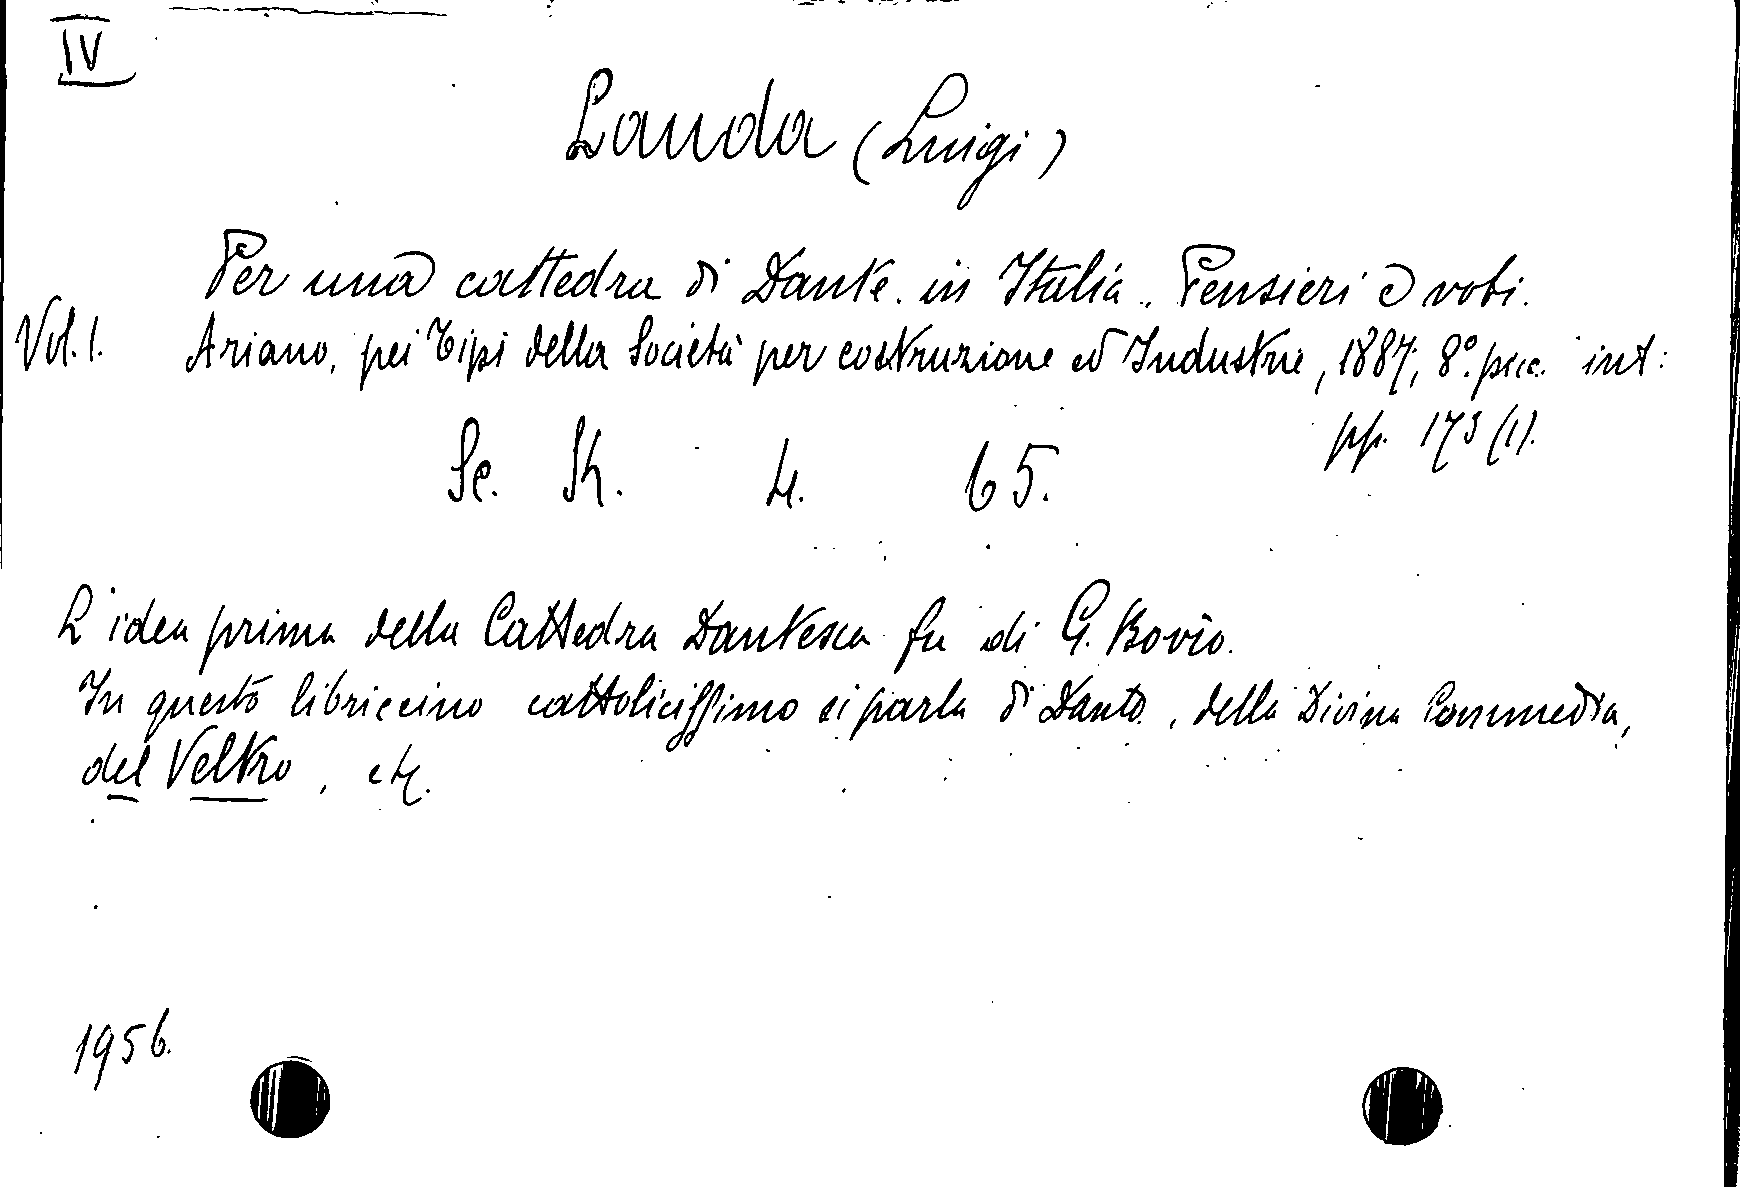 IV
Lauda (Luigi)
Per una cattedra di Dante in Italia. Pensieri e voti.
Vol. 1. Ariano, pei Tipi della Società per costruzione ed Industrie, 1887, 8º. picc. int:
pp. 173 (1).
Sc. K. 4. 65.
L'idea prima della Cattedra Dantesca fu di G. Bovio.
In questo libriccino cattolicissimo si parla di Dante, della Divina Commedia,
del Veltro, etc.
1956.